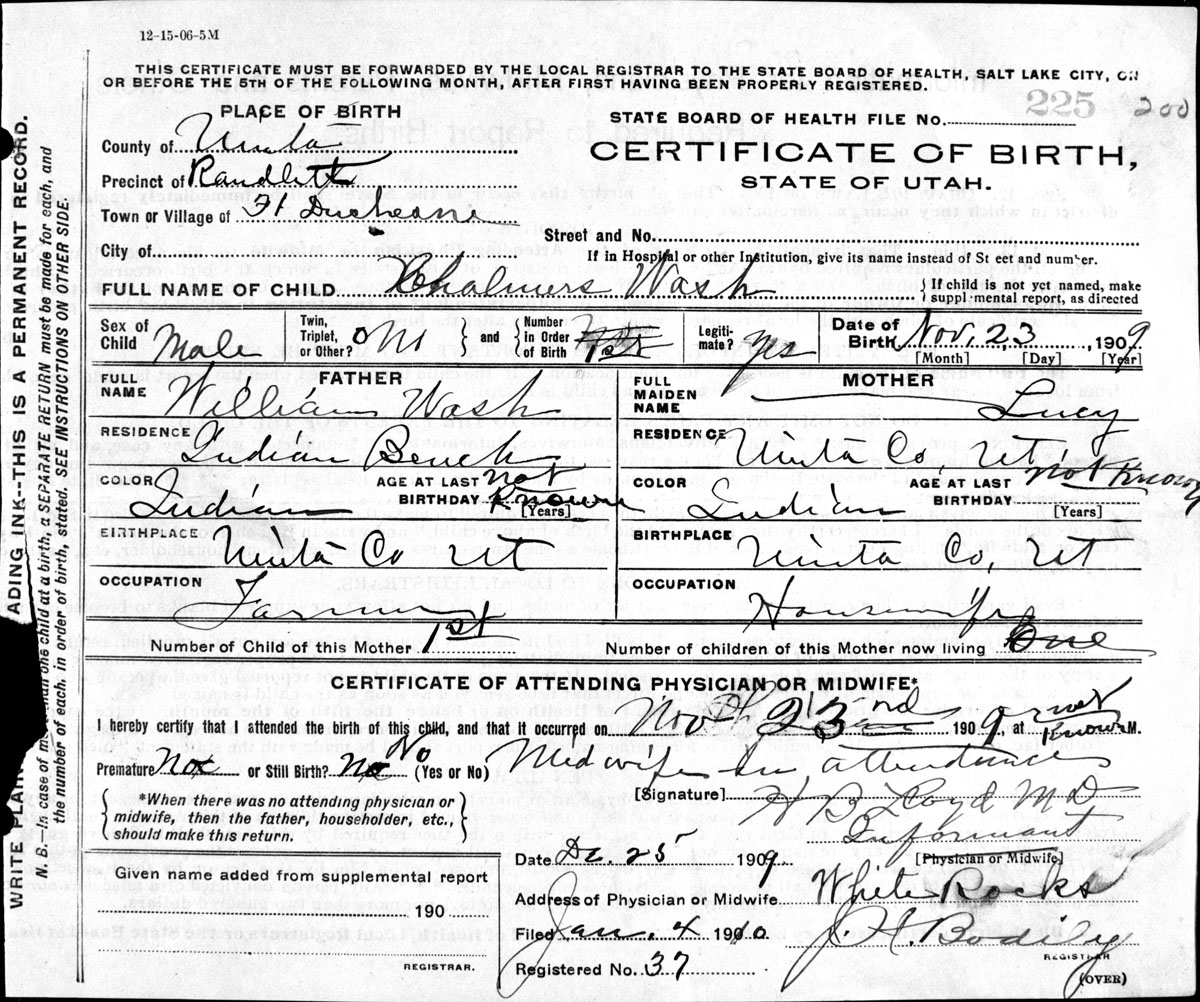 12-15-06-5M
THIS CERTIFICATE MUST BE FORWARDED BY THE LOCAL REGISTRAR TO THE STATE BOARD OF HEALTH, SALT LAKE CITY, ON
OR BEFORE THE 5TH OF THE FOLLOWING MONTH, AFTER FIRST HAVING BEEN PROPERLY REGISTERED.
PLACE OF BIRTH
STATE BOARD OF HEALTH FILE No. 225 200
County of Uinta
CERTIFICATE OF BIRTH,
Precinct of Randlett
STATE OF UTAH.
Town or Village of Ft Duchesne
Street and No.
City of
If in Hospital or other Institution, give its name instead of St eet and number.
FULL NAME OF CHILD Chalmers Wash { If child is not yet named, make
supplemental report, as directed
Sex of Child Male Twin, Triplet, or Other? No } and { Number in Order of Birth 1st Legiti- mate? Yes Date of Birth Nov. 23 1909
[Month] [Day] [Year]
FATHER MOTHER
FULL NAME William Wash FULL MAIDEN NAME Lucy
RESIDENCE Indian Bench RESIDENCE Uinta Co, Ut
COLOR Indian AGE AT LAST BIRTHDAY not Known [Years] COLOR Indian AGE AT LAST BIRTHDAY not Known [Years]
BIRTHPLACE Uinta Co Ut BIRTHPLACE Uinta Co, Ut
OCCUPATION Farmer OCCUPATION Housewife
Number of Child of this Mother 1st Number of children of this Mother now living One
CERTIFICATE OF ATTENDING PHYSICIAN OR MIDWIFE*
I hereby certify that I attended the birth of this child, and that it occurred on Nov 23rd 1909, at not Known M.
Premature Not or Still Birth? No No (Yes or No) Midwife in attendance
*When there was no attending physician or
midwife, then the father, householder, etc.,
should make this return.
[Signature] H B Lloyd MD
Informant
[Physician or Midwife]
Date Dec. 25 1909
Given name added from supplemental report
190
REGISTRAR.
Address of Physician or Midwife White Rocks
Filed Jan. 4 1900 J. H. Bodily
REGISTRAR
Registered No. 37
(OVER)
WRITE PLAIN ADING INK--THIS IS A PERMANENT RECORD.
N. B.--In case of m an one child at a birth, a SEPARATE RETURN must be made for each, and
the number of each, in order of birth, stated. SEE INSTRUCTIONS ON OTHER SIDE.